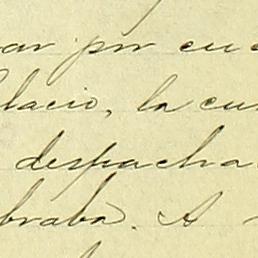 ar por cu
lacio, la cu
despacha
braba. A